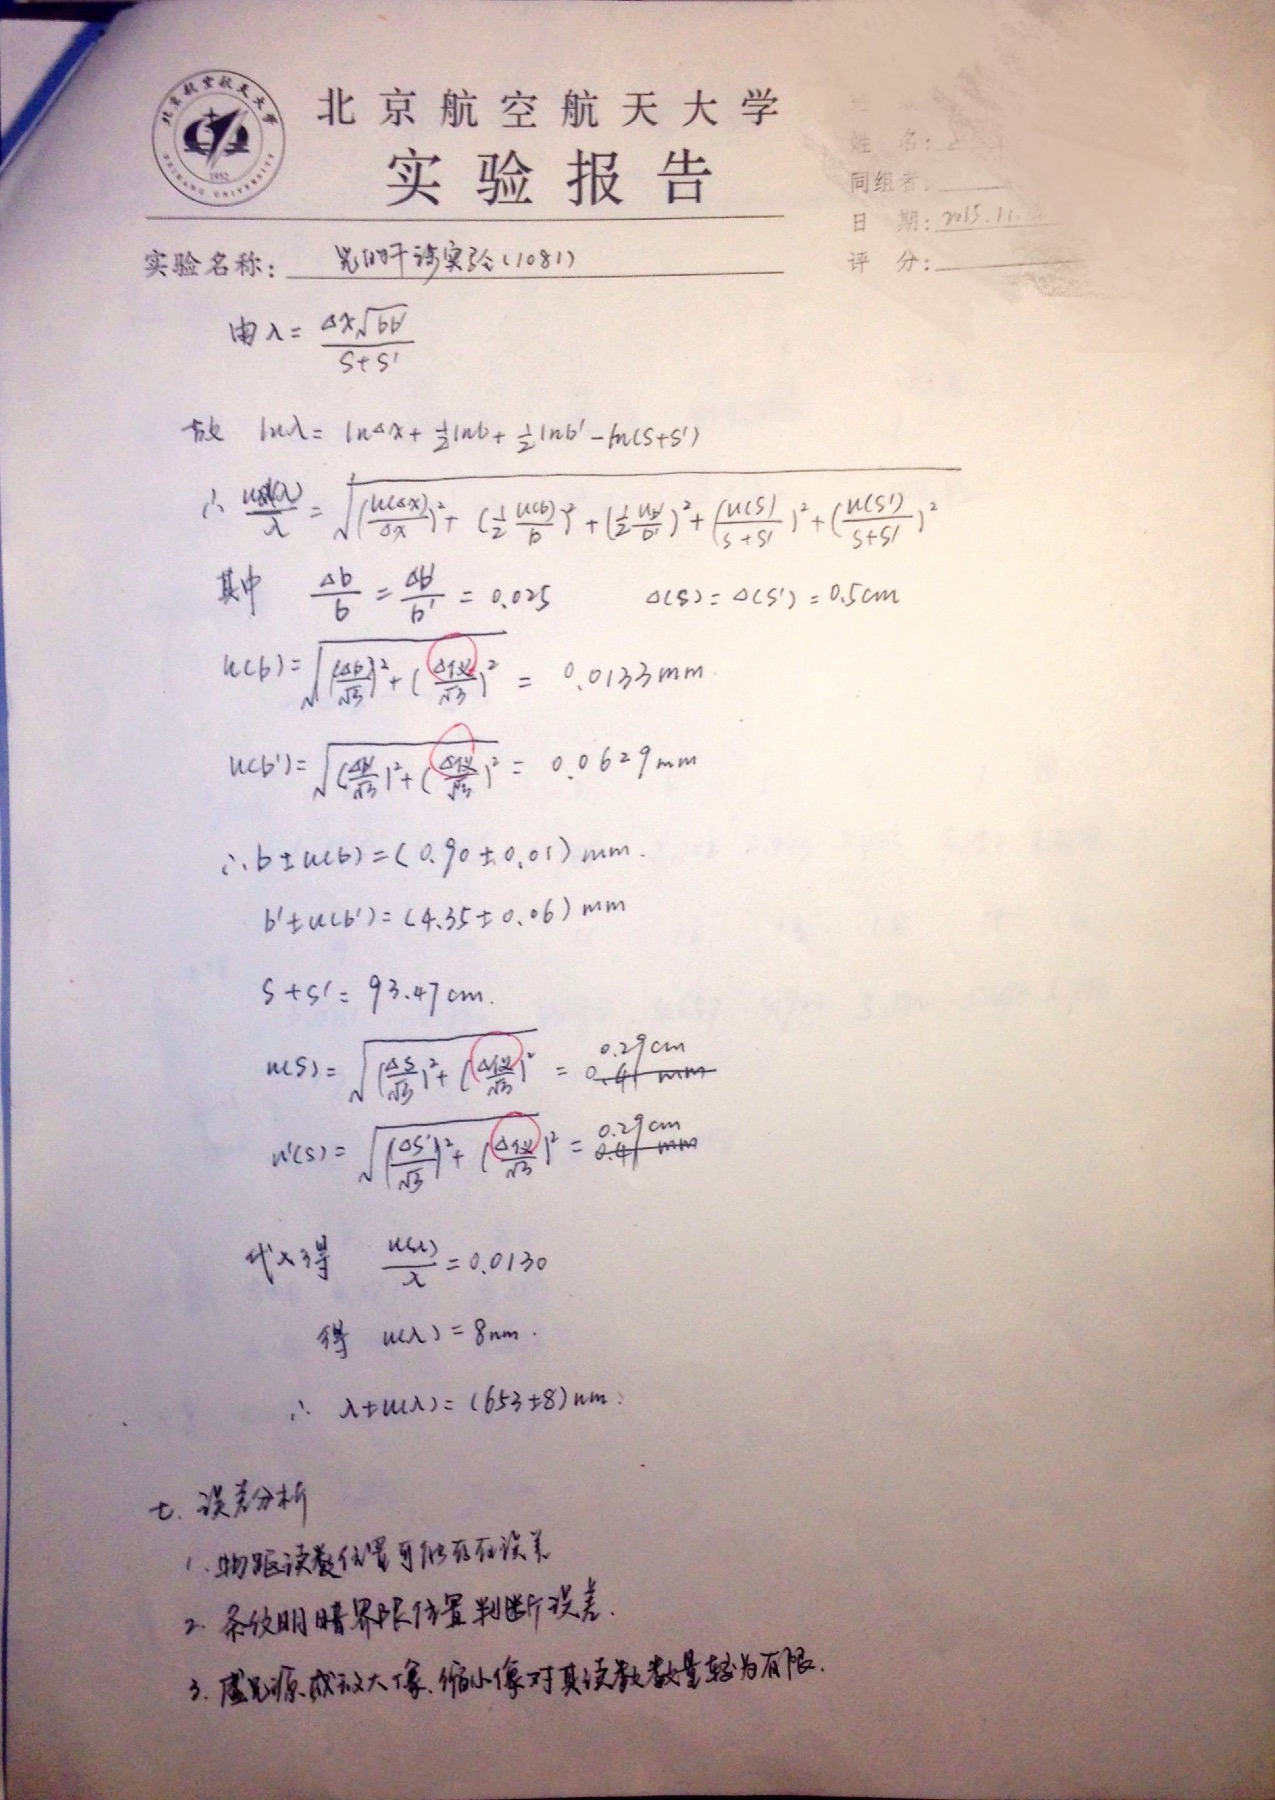 北京航空航天大学
实验报告
北京航空航天大学
BEIHANG UNIVERSITY
1952
姓 名:
同组者:
日 期: 2015.11.
评 分:
实验名称: 光的干涉实验(1081)
由 λ = Δx√bb' / S+S'
故 lnλ = lnΔx + ½lnb + ½lnb' - ln(S+S')
∴ u(λ)/λ = √(u(Δx)/Δx)² + (½ u(b)/b)² + (½ u(b')/b')² + (u(S)/S+S')² + (u(S')/S+S')²
其中 Δb/b = Δb'/b' = 0.025 Δ(S) = Δ(S') = 0.5cm
u(b) = √(Δb/√3)² + (Δ仪/√3)² = 0.0133mm
u(b') = √(Δb'/√3)² + (Δ仪/√3)² = 0.0629mm
∴ b±u(b) = (0.90±0.01) mm.
b'±u(b') = (4.35±0.06) mm
S+S' = 93.47cm.
u(S) = √(ΔS/√3)² + (Δ仪/√3)² = 0.29cm
0.41 mm
u'(S) = √(ΔS'/√3)² + (Δ仪/√3)² = 0.29cm
0.41 mm
代入得 u(λ)/λ = 0.0130
得 u(λ) = 8nm.
∴ λ±u(λ) = (653±8)nm.
七. 误差分析
1. 物距读数位置可能存在误差
2. 条纹明暗界限位置判断误差.
3. 虚光源成放大像、缩小像对其读数数量较为有限.